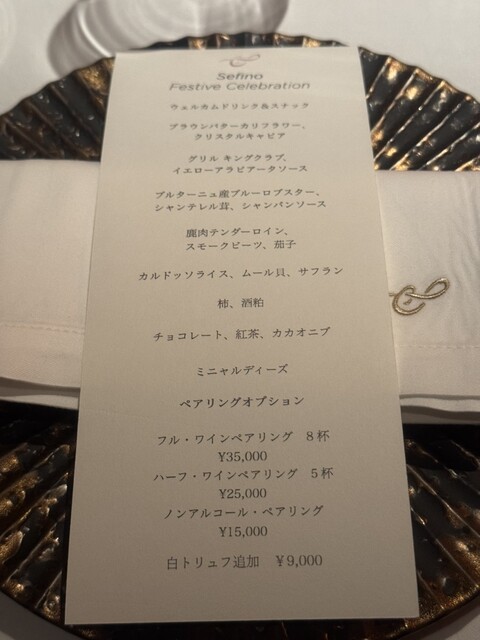 Sefino
Festive Celebration
ウェルカムドリンク&スナック
ブラウンバターカリフラワー、
クリスタルキャビア
グリル キングクラブ、
イエローアラビアータソース
ブルターニュ産ブルーロブスター、
シャンテレル茸、シャンパンソース
鹿肉テンダーロイン、
スモークビーツ、茄子
カルドッソライス、ムール貝、サフラン
柿、酒粕
チョコレート、紅茶、カカオニブ
ミニャルディーズ
ペアリングオプション
フル・ワインペアリング 8杯
¥35,000
ハーフ・ワインペアリング 5杯
¥25,000
ノンアルコール・ペアリング
¥15,000
白トリュフ追加 ¥9,000